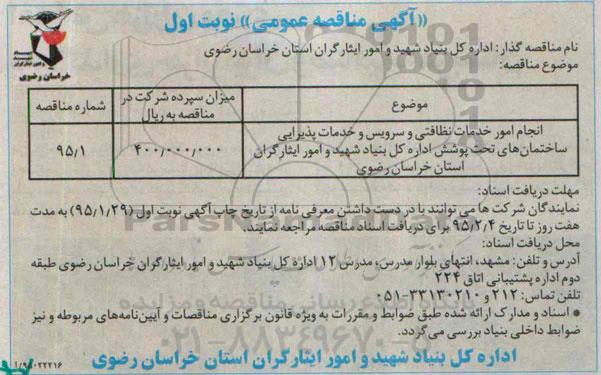 «آگهی مناقصه عمومی» نوبت اول
خراسان رضوی
نام مناقصه گذار: اداره کل بنیاد شهید و امور ایثارگران استان خراسان رضوی
موضوع مناقصه:
موضوع
میزان سپرده شرکت در مناقصه به ریال
شماره مناقصه
انجام امور خدمات نظافتی و سرویس و خدمات پذیرایی
ساختمان‌های تحت پوشش اداره کل بنیاد شهید و امور ایثارگران
استان خراسان رضوی
۴۰۰/۰۰۰/۰۰۰
۹۵/۱
مهلت دریافت اسناد:
نمایندگان شرکت ها می توانند با در دست داشتن معرفی نامه از تاریخ چاپ آگهی نوبت اول (۹۵/۱/۲۹) به مدت
هفت روز تا تاریخ ۹۵/۲/۴ برای دریافت اسناد مناقصه مراجعه نمایند.
محل دریافت اسناد:
آدرس و تلفن: مشهد، انتهای بلوار مدرس، مدرس ۱۲ اداره کل بنیاد شهید و امور ایثارگران خراسان رضوی طبقه
دوم اداره پشتیبانی اتاق ۲۲۴
تلفن تماس: ۲۱۲ و ۳۳۱۳۰۲۱۰-۰۵۱
* اسناد و مدارک ارائه شده طبق ضوابط و مقررات به ویژه قانون برگزاری مناقصات و آیین‌نامه‌های مربوطه و نیز
ضوابط داخلی بنیاد بررسی می‌گردد.
اداره کل بنیاد شهید و امور ایثارگران استان خراسان رضوی
۰۲۱-۸۸۳۴۹۶۷۰